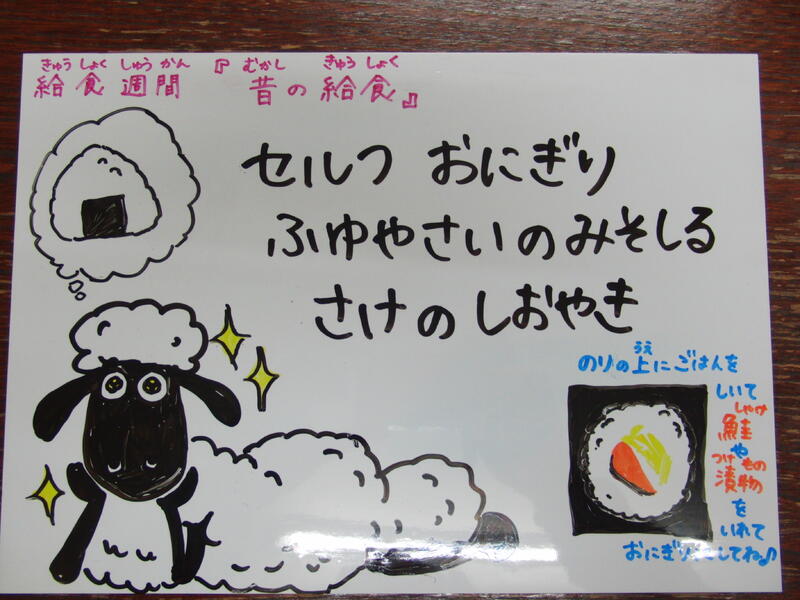 きゅう しょく しゅう かん むかし きゅう しょく
給食週間 『昔の給食』
セルフ おにぎり
ふゆやさいのみそしる
さけのしおやき
うえ
のりの上にごはんを
しいて
しゃけ
鮭や
つけ もの
漬物
を
いれて
おにぎりにしてね♪